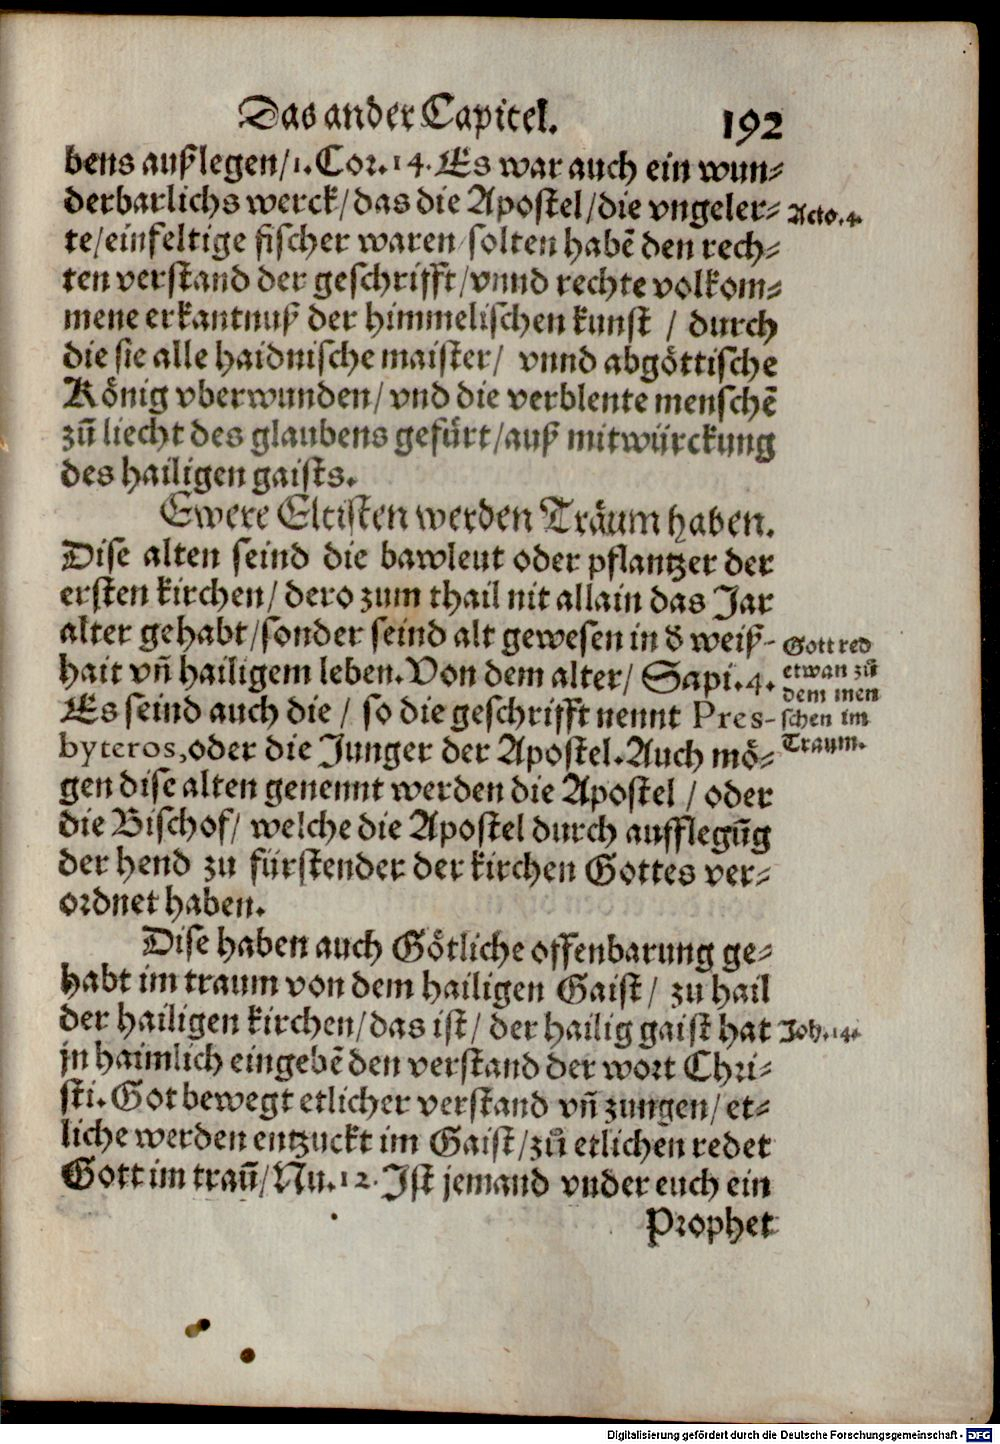 Das ander Capitel. 192
bens außlegen/1. Cor. 14. Es war auch ein wun-
derbarlichs werck/das die Apostel/die vngeler-
Acto. 4.
te/einfeltige fischer waren/solten habē den rech-
ten verstand der geschrifft/vnnd rechte volkom-
mene erkantnuß der himmelischen kunst / durch
die sie alle haidnische maister/ vnnd abgöttische
König vberwunden/ vnd die verblente menschē
zů liecht des glaubens gefürt/auß mitwürckung
des hailigen gaists.
Ewere Eltisten werden Träum haben.
Dise alten seind die bawleut oder pflantzer der
ersten kirchen/ dero zum thail nit allain das Jar
alter gehabt/sonder seind alt gewesen in đ weiß-
hait vñ hailigem leben. Von dem alter/ Sapi. 4.
Es seind auch die / so die geschrifft nennt Pres-
byteros, oder die Junger der Apostel. Auch mö-
Gott red
etwan zů
dem men
schen im
Traum.
gen dise alten genennt werden die Apostel / oder
die Bischof/ welche die Apostel durch aufflegūg
der hend zu fürstender der kirchen Gottes ver-
ordnet haben.
Dise haben auch Götliche offenbarung ge-
habt im traum von dem hailigen Gaist/ zu hail
der hailigen kirchen/das ist/ der hailig gaist hat
Joh. 14.
jn haimlich eingebē den verstand der wort Chri-
sti. Got bewegt etlicher verstand vñ zungen/ et-
liche werden entzuckt im Gaist/zů etlichen redet
Gott im traū/Nu. 12. Ist jemand vnder euch ein
Prophet
Digitalisierung gefördert durch die Deutsche Forschungsgemeinschaft - DFG